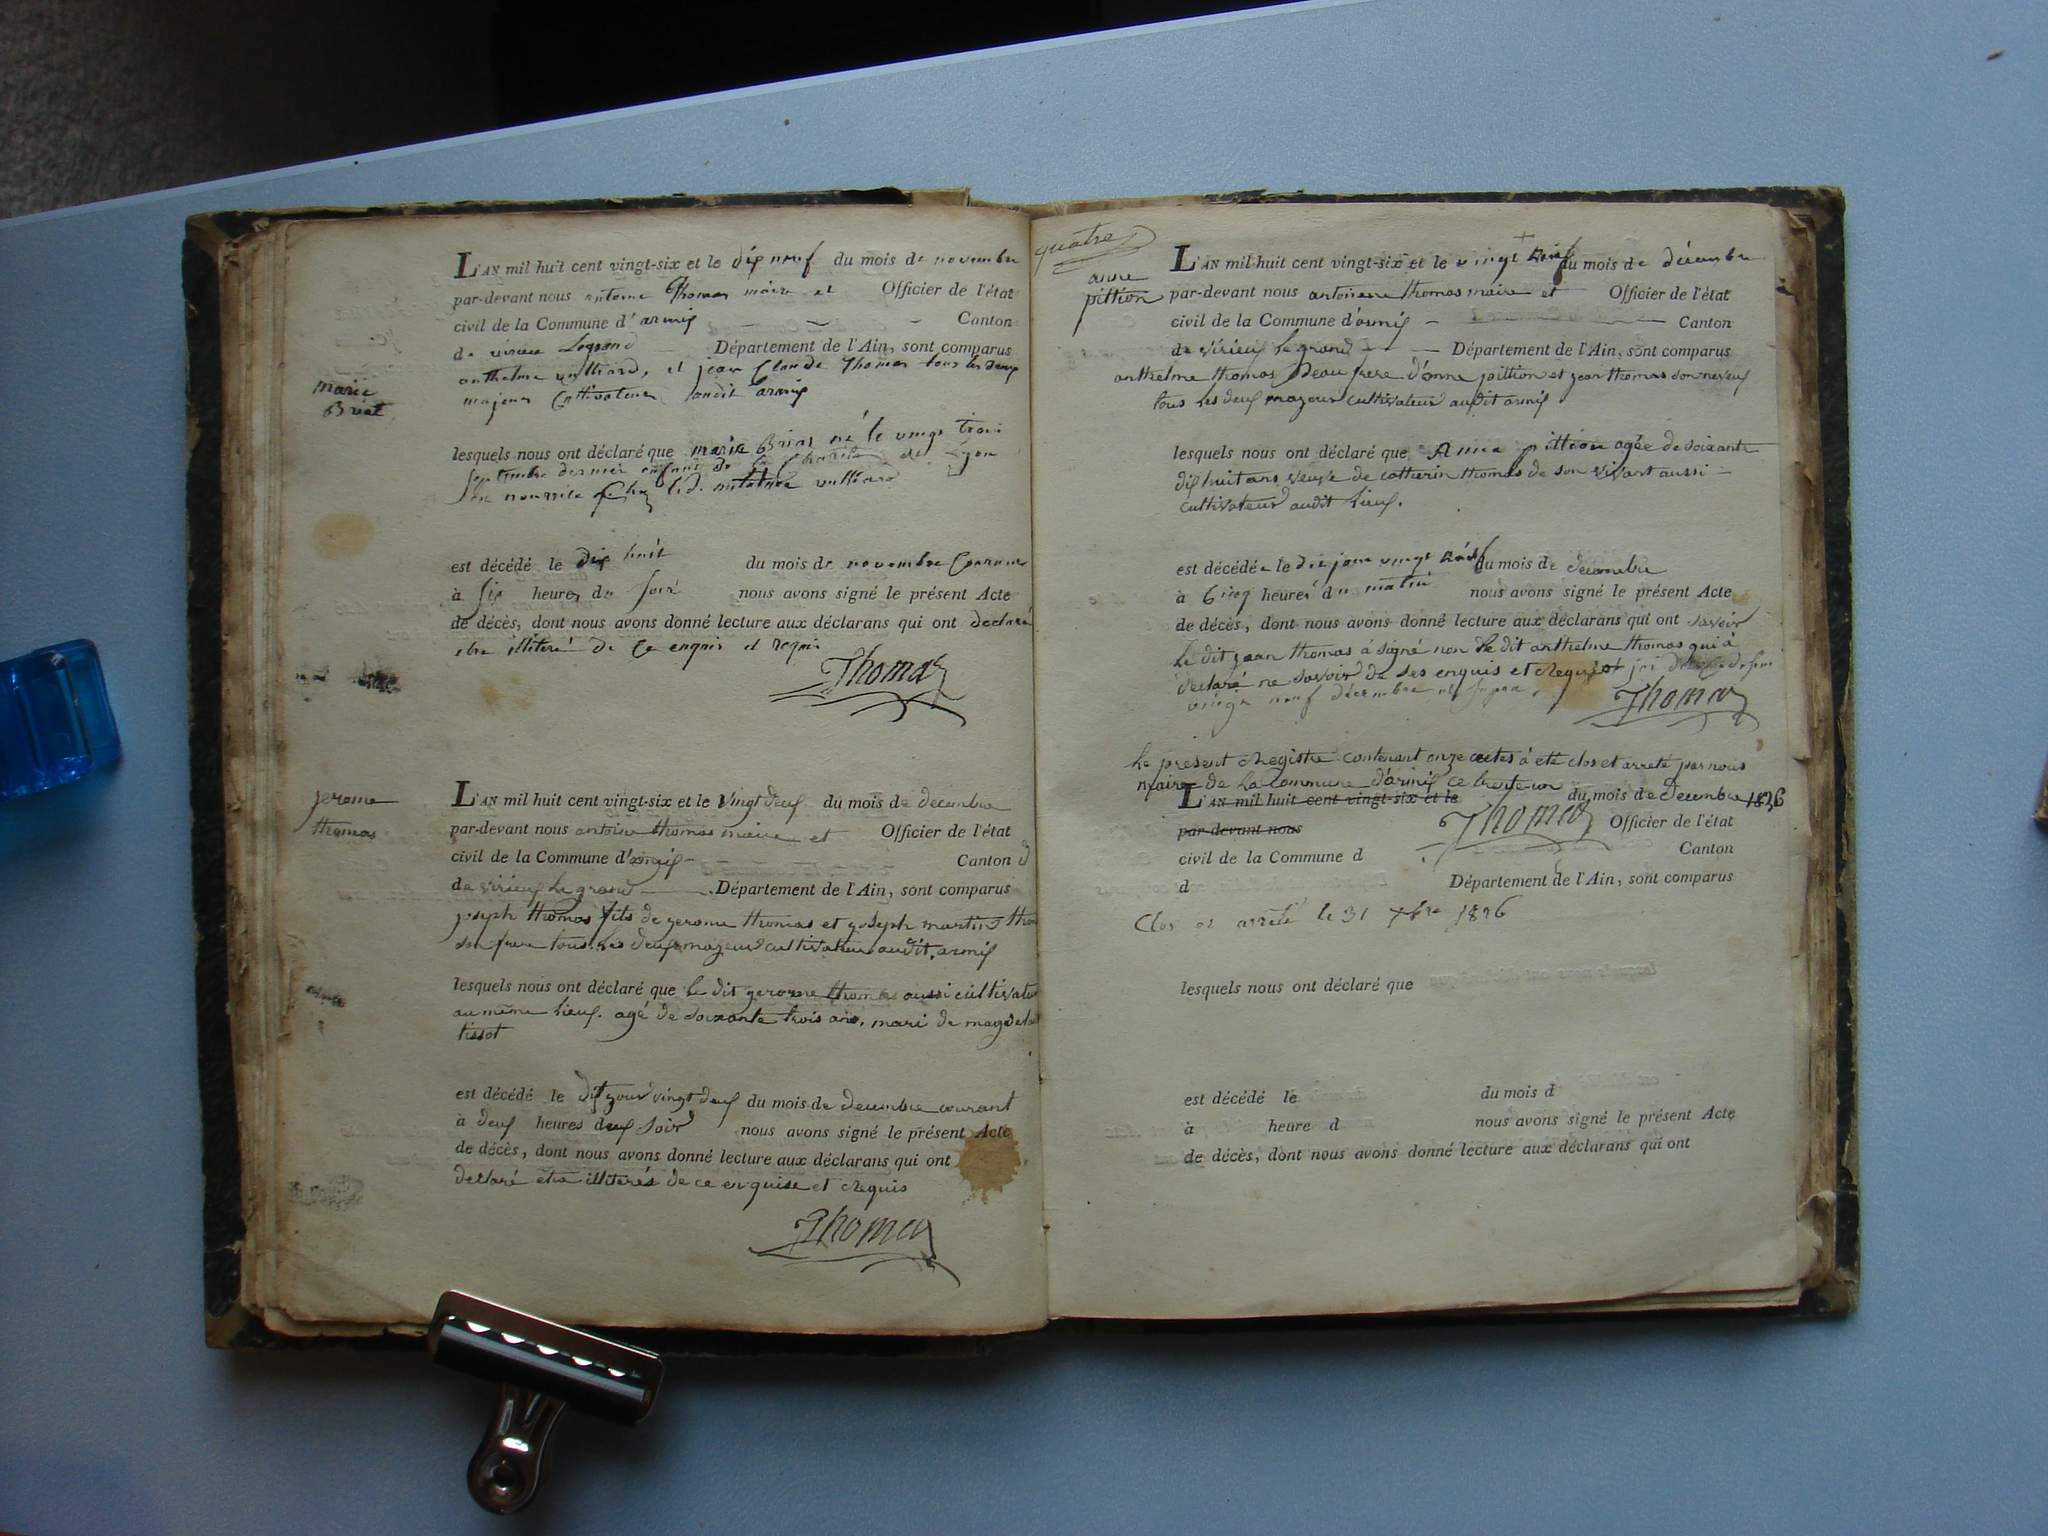 marie
Briat
L'AN mil huit cent vingt-six et le dix neuf du mois de novembre
par-devant nous antoine Thomas maire et Officier de l'état
civil de la Commune d'armix Canton
de virieu Legrand Département de l'Ain, sont comparus
anthelme vulliard, et jean Claude Thomas tous les deux
majeur Cultivateur audit armix
lesquels nous ont déclaré que marie Brias né le vingt trois
septembre dernier enfant de la Charité de Lyon
en nourrice Chez led. vulliard
est décédé le dix huit du mois de novembre Courant
à six heures du soir nous avons signé le présent Acte
de décès, dont nous avons donné lecture aux déclarans qui ont déclaré
etre illiteré de Ce enquis et requis
Thomas
jerome
thomas
L'AN mil huit cent vingt-six et le vingt deux du mois de decembre
par-devant nous antoine thomas maire et Officier de l'état
civil de la Commune d'armix Canton d
de virieux le grand Département de l'Ain, sont comparus
joseph thomas fils de gerome thomas et joseph martin thom
son frere tous les deux mageur cultivateur audit armix
lesquels nous ont déclaré que le dit gerome thomas aussi cultivateur
au même lieux. agé de soixante trois ans, mari de magdelaine
tissot
est décédé le dit jour vingt deux du mois de decembre courant
à deux heures deux soir nous avons signé le présent Acte
de décès, dont nous avons donné lecture aux déclarans qui ont
declaré etre illiterés de ce enquise et Requis
Thomas
quatre
anne
pittion
L'AN mil huit cent vingt-six et le vingt neuf du mois de décembre
par-devant nous antoine thomas maire et Officier de l'état
civil de la Commune d'armix Canton
de virieu le grand Département de l'Ain, sont comparus
anthelme thomas Beau frere d'anne pittion et jean thomas son neveux
tous les deux mageur cultivateur audit armix
lesquels nous ont déclaré que Anne pittion agée de soixante
dix huit ans veuve de catherin thomas de son vivant aussi
cultivateur audit lieux.
est décédée le dit jour vingt neuf du mois de decembre
à Cinq heures du matin nous avons signé le présent Acte
de décès, dont nous avons donné lecture aux déclarans qui ont savoir
Le dit jean thomas à signé non le dit anthelme thomas qui à
declaré ne savoir de ses enquis et Requis
vingt neuf décembre et
Thomas
Le présent Registre contenant onze actes à été clos et arreté par nous
maire de la Commune d'armix ce trente un
L'AN mil huit cent vingt-six et le du mois de decembre 1826
par-devant nous Thomas Officier de l'état
civil de la Commune d Canton
d Département de l'Ain, sont comparus
Clos et arrêté le 31 1826
lesquels nous ont déclaré que
est décédé le du mois d
à heure d nous avons signé le présent Acte
de décès, dont nous avons donné lecture aux déclarans qui ont